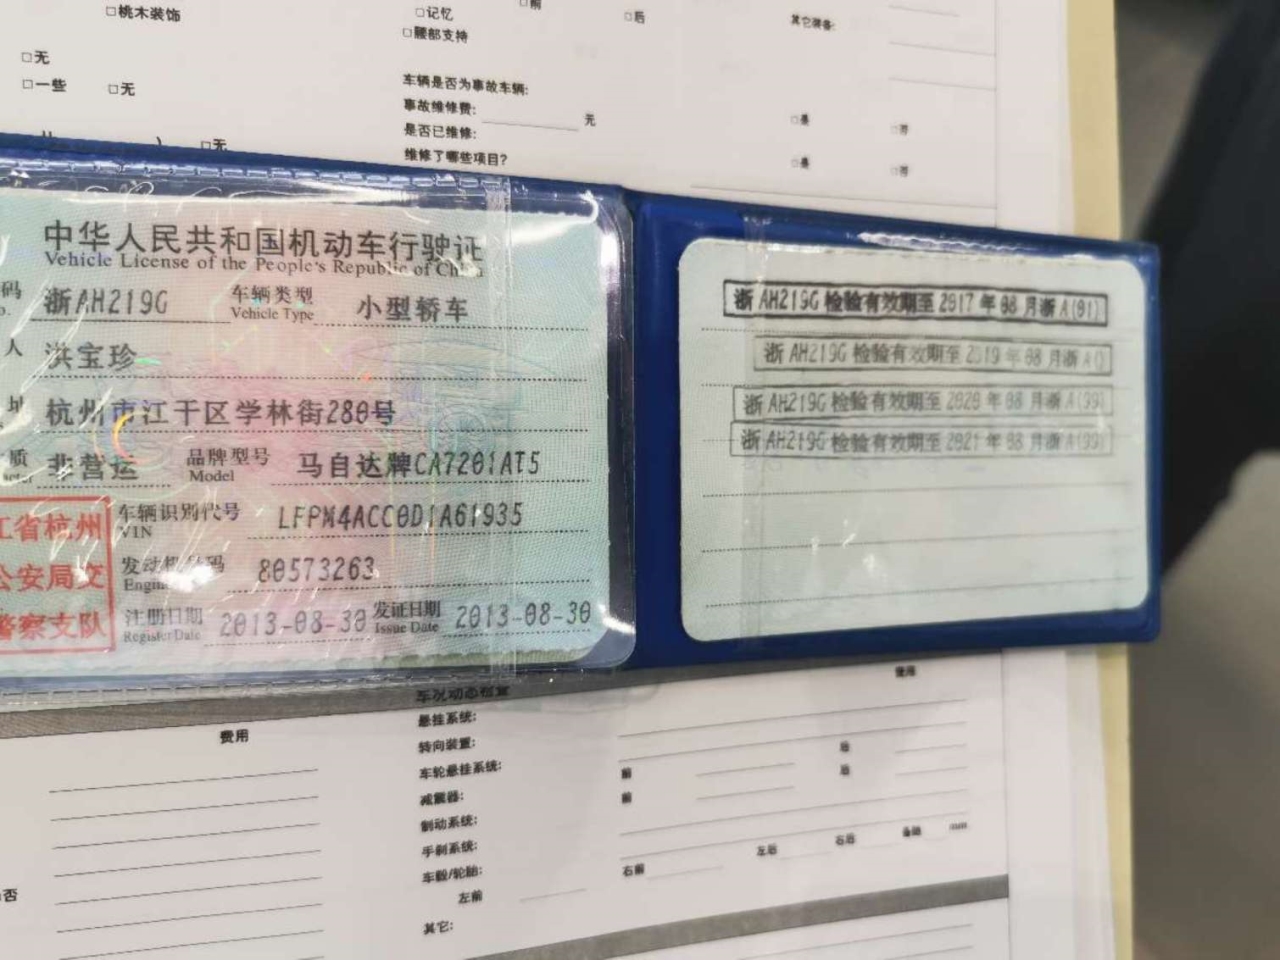 □桃木装饰
□记忆
□前
□后
其它装备:
□腰部支持
□无
□一些 □无
车辆是否为事故车辆:
事故维修费: 元
□是 □否
是否已维修:
□无
维修了哪些项目?
□是 □否
中华人民共和国机动车行驶证
Vehicle License of the People's Republic of China
码 浙AH219G 车辆类型 小型轿车
Vehicle Type
人 洪宝珍
址 杭州市江干区学林街280号
质 非营运 品牌型号 马自达牌CA7201AT5
Model
车辆识别代号 LFPM4ACC0D1A61935
VIN
发动机号码 80573263
江省杭州
公安局交
警察支队
注册日期 2013-08-30 发证日期 2013-08-30
Register Date Issue Date
浙AH219G 检验有效期至 2017 年 08 月浙A(01)
浙AH219G 检验有效期至 2019 年 08 月浙A()
浙AH219G 检验有效期至 2020 年 08 月浙A(99)
浙AH219G 检验有效期至 2021 年 08 月浙A(99)
费用
车况动态检查
费用
悬挂系统:
转向装置:
车轮悬挂系统: 前 后
减震器: 前 后
制动系统:
手刹系统:
车毂/轮胎: 右前 左后 右后 备胎 mm
左前
其它:
否